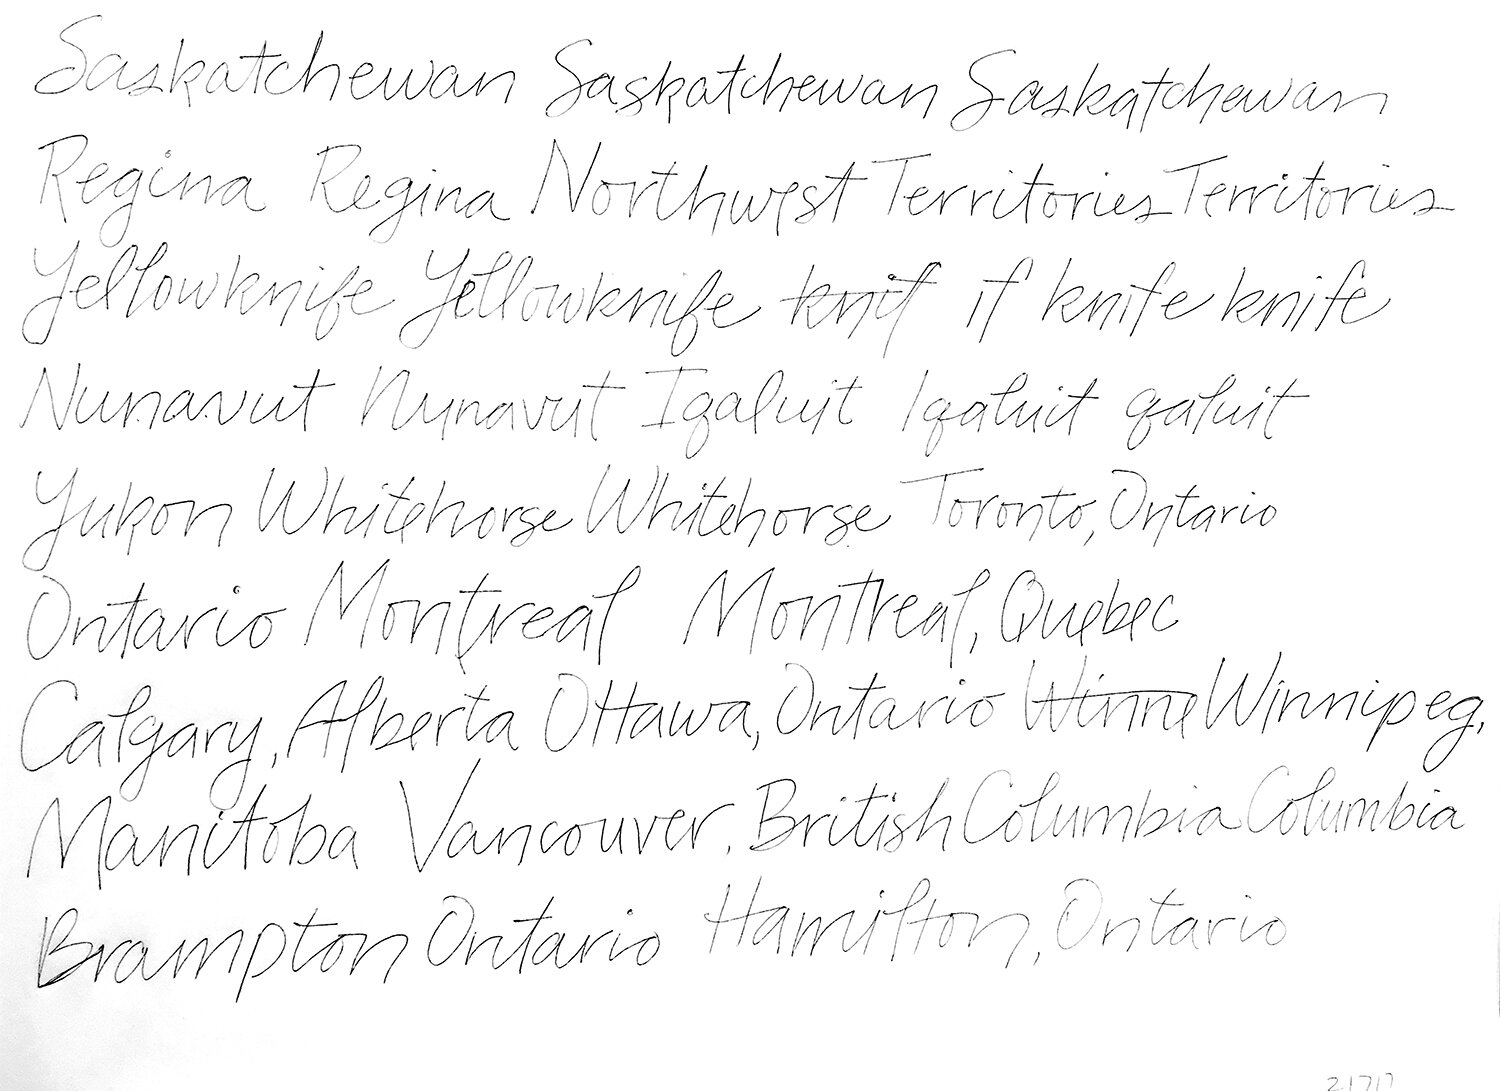 Saskatchewan Saskatchewan Saskatchewan
Regina Regina Northwest Territories Territories
Yellowknife Yellowknife knif if knife knife
Nunavut Nunavut Iqaluit Iqaluit qaluit
Yukon Whitehorse Whitehorse Toronto, Ontario
Ontario Montreal Montreal, Quebec
Calgary, Alberta Ottawa, Ontario Winne Winnipeg,
Manitoba Vancouver, British Columbia Columbia
Brampton Ontario Hamilton, Ontario